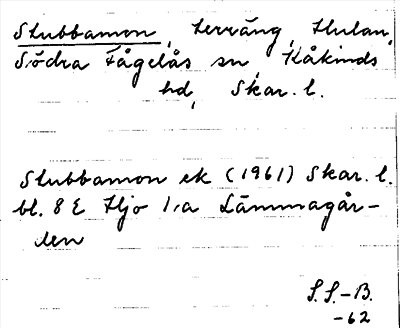 Stubbamon, terräng, Hulan,
Södra Fågelås sn, Kåkinds
hd, Skar. l.
Stubbamon ek (1961) Skar. l.
bl. 8 E Hjo 1:a Lämmagår-
den
S.S.-B.
-62